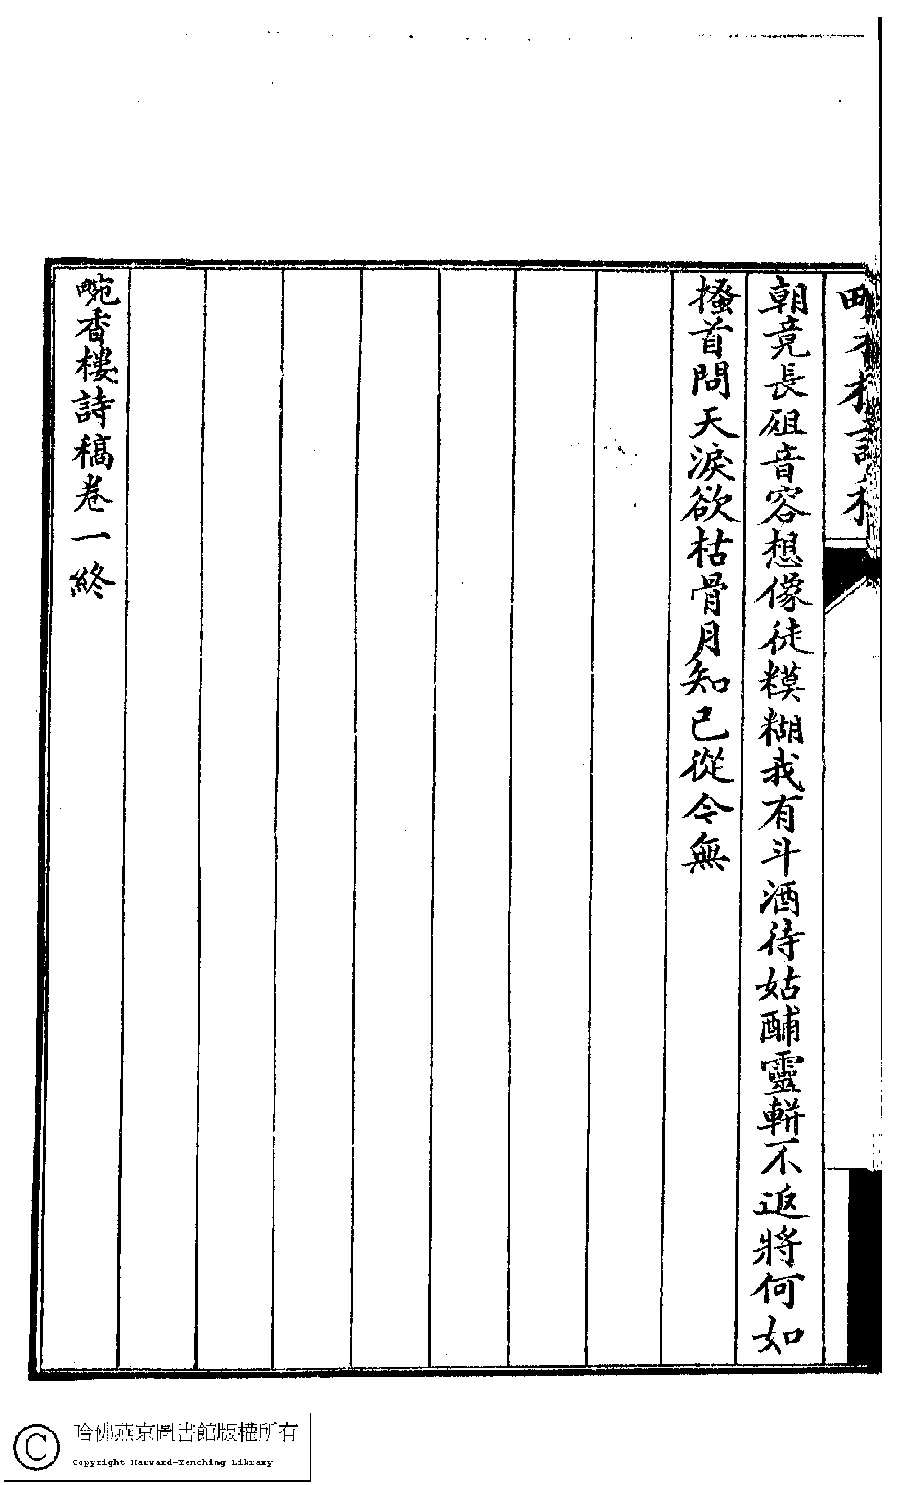 朝竟長徂音容想像徒糢糊我有斗酒待姑酺靈輧不返將何如
搔首問天淚欲枯骨月知己從今無
畹香樓詩稿卷一終
哈佛燕京圖書館版權所有
Copyright Harvard-Yenching Library